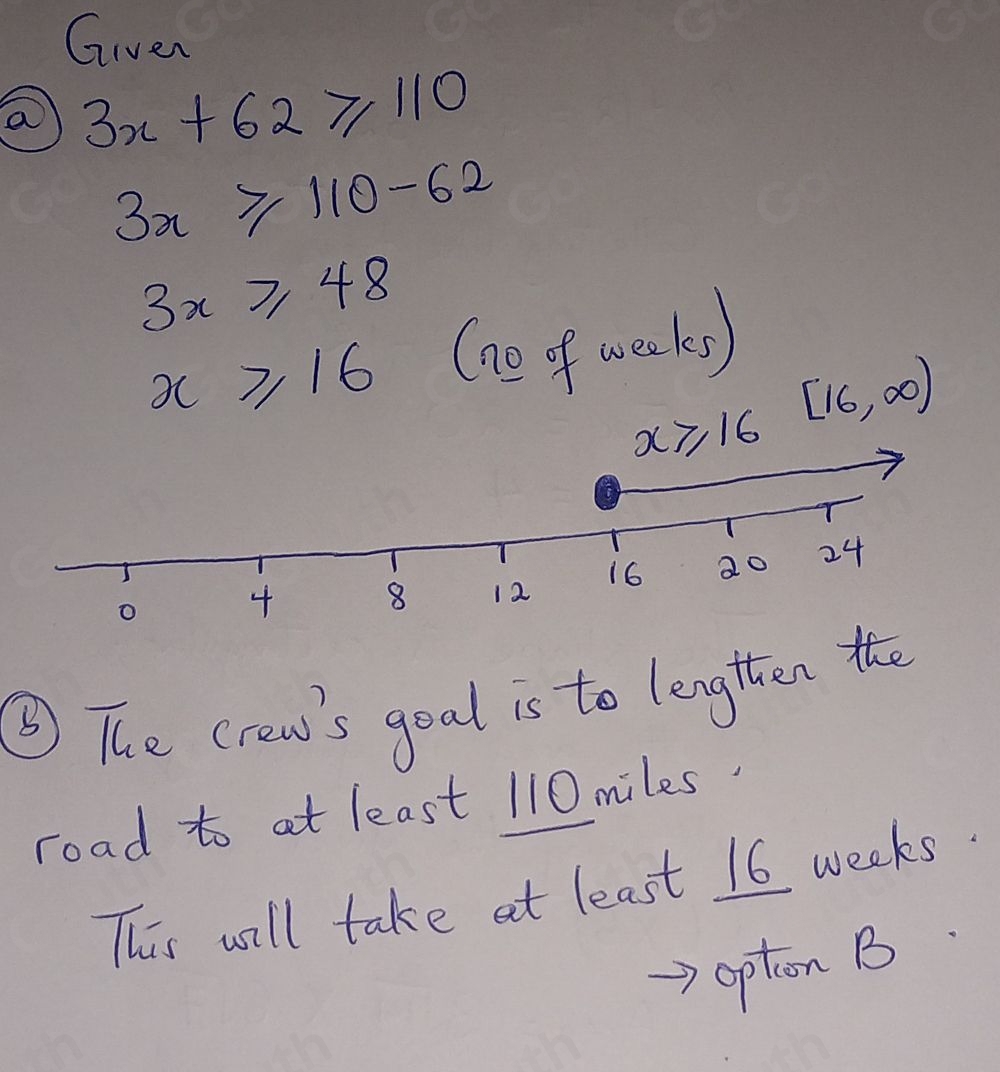 Given
(a) 3x + 62 ⩾ 110
3x ⩾ 110 - 62
3x ⩾ 48
x ⩾ 16 (no of weeks)
x ⩾ 16 [16, ∞)
0 4 8 12 16 20 24
(b) The crew's goal is to lengthen the
road to at least 110 miles.
This will take at least 16 weeks.
→ option B.